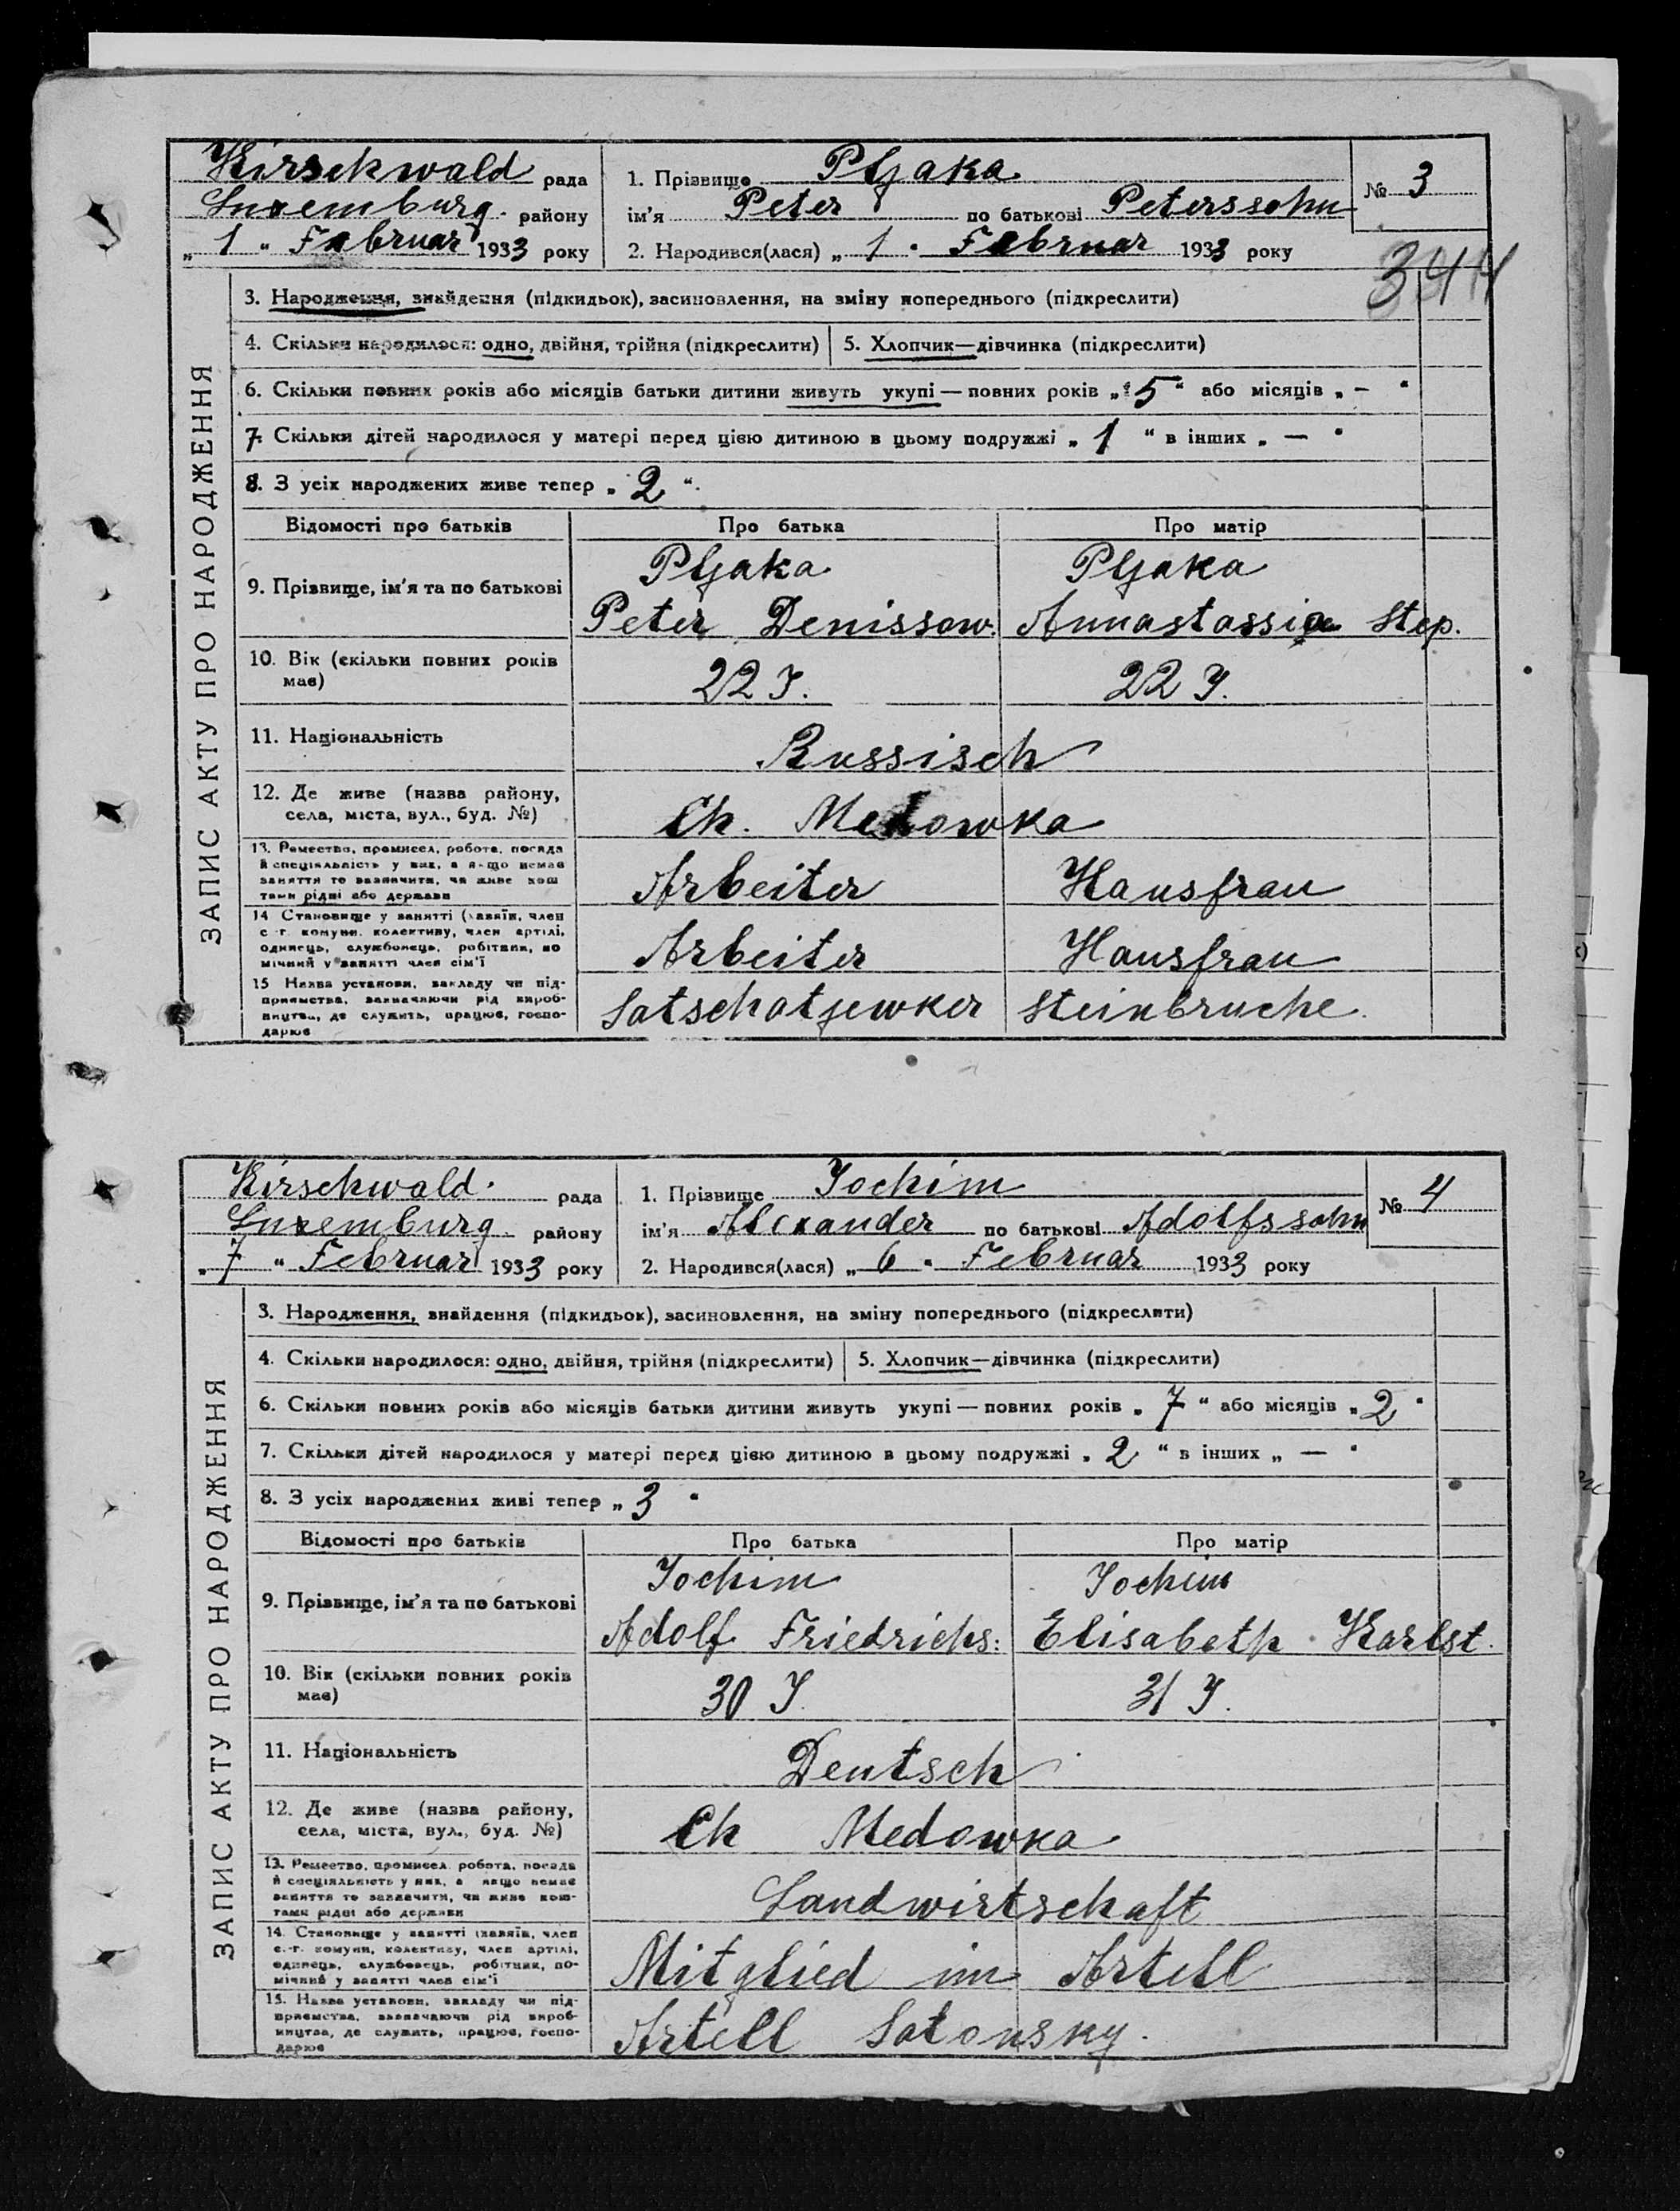 Kirschwald рада
Luxemburg району
„ 1 " Februar 1933 року
1. Прізвище Pljaka
ім'я Peter по батькові Peterssohn
2. Народився(лася) „ 1 " Februar 1933 року
№ 3
344
ЗАПИС АКТУ ПРО НАРОДЖЕННЯ
3. Народження, знайдення (підкидьок), засиновлення, на зміну попереднього (підкреслити)
4. Скільки народилося: одно, двійня, трійня (підкреслити) 5. Хлопчик—дівчинка (підкреслити)
6. Скільки повних років або місяців батьки дитини живуть укупі — повних років „ 5 " або місяців „ – "
7. Скільки дітей народилося у матері перед цією дитиною в цьому подружжі „ 1 " в інших „ — "
8. З усіх народжених живе тепер „ 2 ".
Відомості про батьків Про батька Про матір
9. Прізвище, ім'я та по батькові
Pljaka Pljaka
Peter Denissow. Annastassia Step.
10. Вік (скільки повних років має)
22 J. 22 J.
11. Національність
Russisch
12. Де живе (назва району, села, міста, вул., буд. №)
Ch. Medowka
13. Ремество, промисел, робота, посада й спеціяльність у них, а якщо немає заняття то зазначити, чи живе коштами рідні або держави
Arbeiter Hausfrau
14 Становище у занятті (хазяїн, член с.-г. комуни, колективу, член артілі, одинець, службовець, робітник, помічний у занятті член сім'ї
Arbeiter Hausfrau
15 Назва установи, закладу чи підприємства, зазначаючи рід виробництва, де служить, працює, господарює
Satschatjewker Steinbruche.
Kirschwald. рада
Luxemburg району
„ 7 " Februar 1933 року
1. Прізвище Jochim
ім'я Alexander по батькові Adolfssohn
2. Народився(лася) „ 6 " Februar 1933 року
№ 4
ЗАПИС АКТУ ПРО НАРОДЖЕННЯ
3. Народження, знайдення (підкидьок), засиновлення, на зміну попереднього (підкреслити)
4. Скільки народилося: одно, двійня, трійня (підкреслити) 5. Хлопчик—дівчинка (підкреслити)
6. Скільки повних років або місяців батьки дитини живуть укупі — повних років „ 7 " або місяців „ 2 "
7. Скільки дітей народилося у матері перед цією дитиною в цьому подружжі „ 2 " в інших „ — "
8. З усіх народжених живі тепер „ 3 "
Відомості про батьків Про батька Про матір
9. Прізвище, ім'я та по батькові
Jochim Jochim
Adolf Friedrichs: Elisabeth Karlst.
10. Вік (скільки повних років має)
30 J. 31 J.
11. Національність
Deutsch
12. Де живе (назва району, села, міста, вул., буд. №)
Ch Medowka
13. Ремество, промисел, робота, посада й спеціяльність у них, а якщо немає заняття то зазначити, чи живе коштами рідні або держави
Landwirtschaft
14. Становище у занятті (хазяїн, член с.-г. комуни, колективу, член артілі, одинець, службовець, робітник, помічний у занятті член сім'ї
Mitglied im Artell
15. Назва установи, закладу чи підприємства, зазначаючи рід виробництва, де служить, працює, господарює
Artell Satonsky.